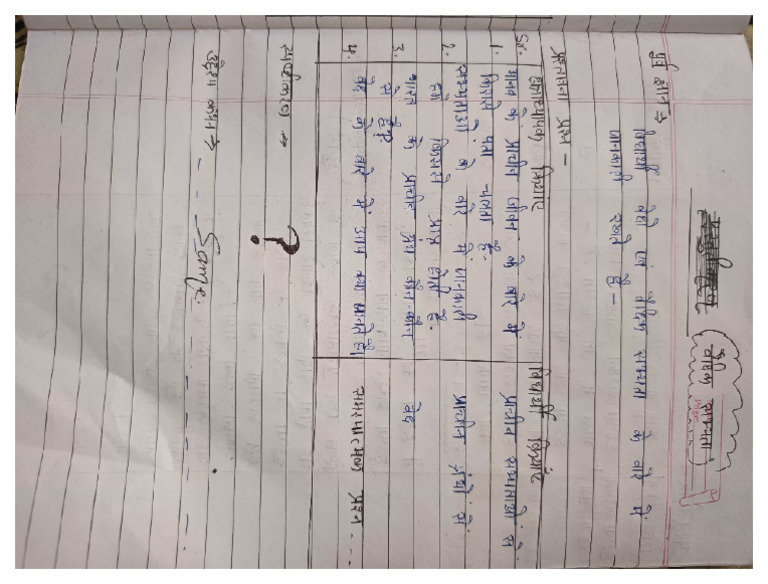 वैदिक सभ्यता
पूर्व ज्ञान →
विद्यार्थी वेदो एवं वैदिक सभ्यता के बारे में
जानकारी रखते हैं –
प्रस्तावना प्रश्न –
Sr. छात्राध्यापक क्रियाएं विद्यार्थी क्रियाएं
1. मानव के प्राचीन जीवन के बारे में प्राचीन सभ्यताओं से
किससे पता चलता है-
2. सभ्यताओं के बारे में जानकारी प्राचीन ग्रंथों से
हमें किससे प्राप्त होती है.
3. भारत के प्राचीन ग्रंथ कौन-कौन वेद
से हैं?
4. वेद के बारे में आप क्या जानते हैं। समस्यात्मक प्रश्न ...
स्पष्टीकरण → ?
उद्देश्य कथन → - - Same. - - - - - -